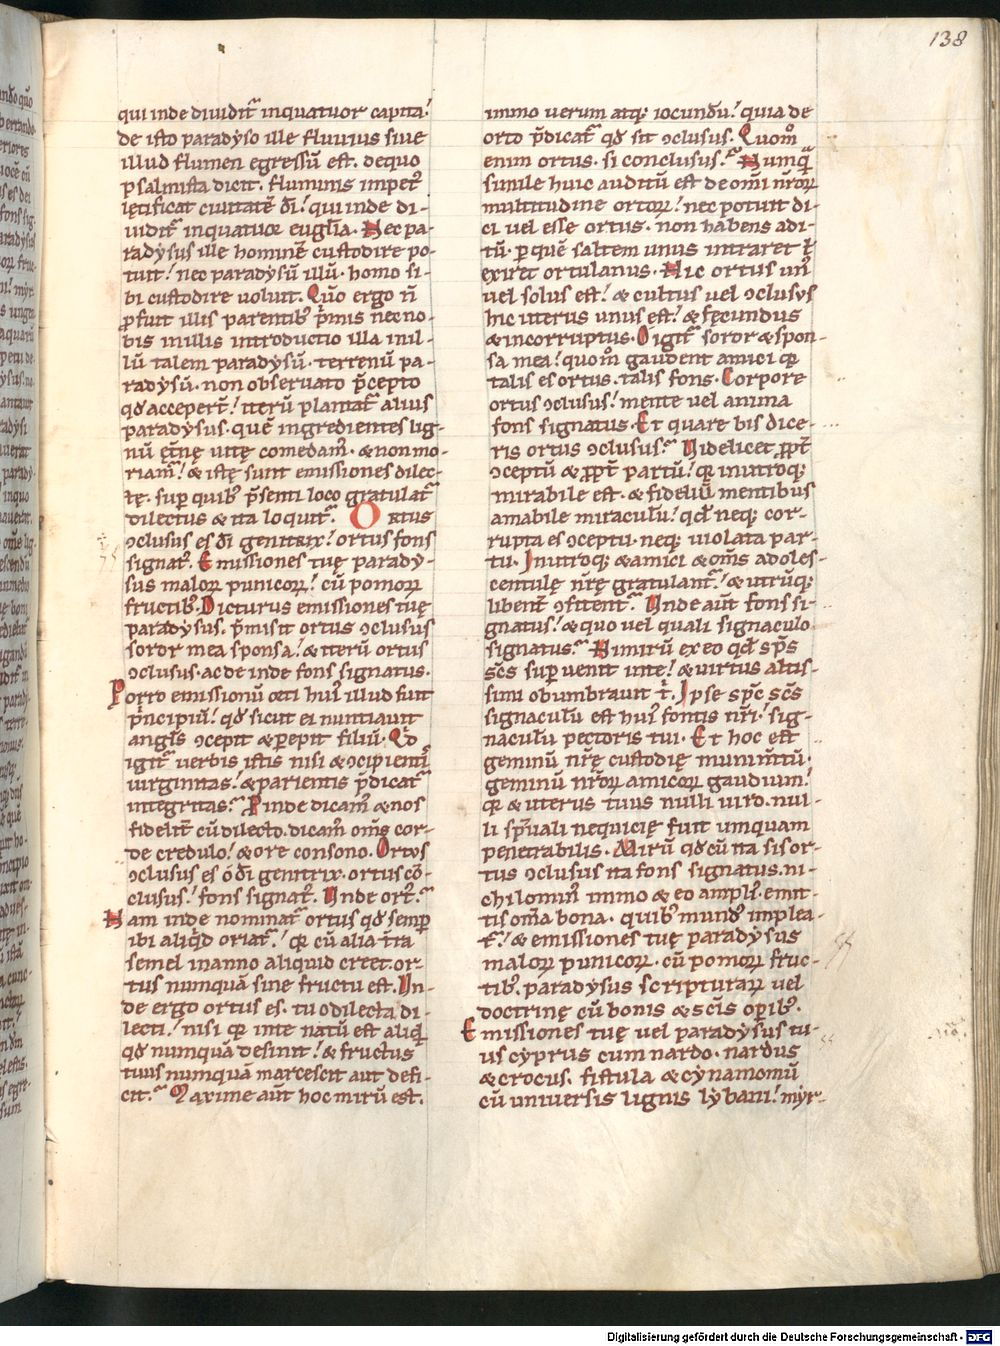 138
qui inde diuidit᷑ inquatuor capita.
de isto paradyso ille fluuius siue
illud flumen egressũ est. dequo
psalmista dicit. fluminis impet᷑
lętificat ciuitatẽ dĩ. qui inde di-
uidit᷑ inquatuor euglĩa. Nec pa-
radysus ille hominẽ custodire po-
tuit. nec paradysũ illũ. homo si-
bi custodire uoluit. Quo ergo ñ
ꝓfuit illis parentibꝰ p̃mis nec no-
bis inillis introductio illa inil-
lũ talem paradysũ. terrenũ pa-
radysũ. non obseruato p̃cepto
qđ acceper̃t. iterũ plantat᷑ alius
paradysus. quẽ ingredientes lig-
nũ et̃nę uitę comedamꝰ. & non mo-
riam᷑. & istę sunt emissiones dilec-
tę. sup quibꝰ p̃senti loco gratulat᷑
dilectus & ita loquit᷑. Ortus
ↄclusus es dĩ genitrix. ortus fons
signatꝰ. Emissiones tuę parady-
sus maloꝝ punicoꝝ. cũ pomoꝝ
fructibꝰ. Dicturus emissiones tuę
paradysus. p̃misit ortus ↄclusus
soror mea sponsa. & iterũ ortus
ↄclusus. ac de inde fons signatus.
Porro emissionũ illud fuit
p̃ncipiũ. qđ sicut ei nuntiauit
angl̃s ↄcepit & peperit filiũ. Qđ
igit᷑ uerbis istis nisi & ↄcipienti
uirginitas. & parientis p̃dicat᷑
integritas. Proinde dicamꝰ & nos
fidelit̃ cũ dilecto. dicamꝰ om̃s cor-
de credulo. & ore consono. Ortus
ↄclusus es ó dĩ genitrix. ortus cõ-
clusus. fons signatꝰ. Unde ortꝰ.
Nam inde nominat᷑ ortus qđ semp
ibi aliqd oriat᷑. quia cũ alia t̃ra
semel in anno aliquid creet. or-
tus numquã sine fructu est. Un-
de ergo ortus es. tu o dilecta di-
lecti. nisi quia inte natũ est aliqđ
qđ numquã desinit. & fructus
tuus numquã marcescit aut defi-
cit. Maxime aũt hoc mirũ est.
immo uerum atqꝫ iocundũ. quia de
orto p̃dicat᷑ qđ sit ↄclusus. Quomõ
enim ortus. si conclusus. Numquĩ
simile huic auditũ est de om̃i nr̃oꝝ
multitudine ortoꝝ. nec potuit di-
ci uel esse ortus. non habens adi-
tũ. p quẽ saltem unus intraret ł
exiret ortulanus. Hic ortus unꝰ
uel solus est. & cultus uel ↄclusus
hic uterus unus est. & fęcundus
& incorruptus. O igit᷑ soror & spon-
sa mea. quomõ gaudent amici quia
talis es ortus. talis fons. Corpore
ortus ↄclusus. mente uel anima
fons signatus. Et quare bis dice-
ris ortus ↄclusus. Videlicet ꝓpt̃
ↄceptũ & ꝓpt̃ partũ. quia inutroqꝫ
mirabile est. & fideliũ mentibus
amabile miraculũ. qđ neqꝫ cor-
rupta es ↄceptu. neqꝫ uiolata par-
tu. Inutroqꝫ & amici & om̃s adoles-
centulę nr̃ę gratulant᷑. & utrũqꝫ
libent̃ ↄfitent᷑. Unde aũt fons si-
gnatus. & quo uel quali signaculo
signatus. Nimirũ ex eo qđ sp̃s
sc̃s superuenit inte. & uirtus altis-
simi obumbrauit t'. Ipse sp̃c sc̃s
signaculũ est huiꝰ fontis nr̃i. sig-
naculũ pectoris tui. Et hoc est
geminũ nr̃ę custodię munim̃tũ.
geminũ nr̃oꝝ amicoꝝ gaudium.
quia & uterus tuus nulli uiro. nul-
li spũali nequicię fuit umquam
penetrabilis. Mirũ qđ cũ ita sis or-
tus ↄclusus ita fons signatus. ni-
chilominꝰ immo & eo ampliꝰ emit-
tis om̃a bona. quibꝰ mundꝰ implea-
t᷑. & emissiones tuę paradysus
maloꝝ punicoꝝ. cũ pomoꝝ fruc-
tibꝰ. paradysus scripturaꝝ uel
doctrinę cũ bonis & sc̃is operibꝰ.
Emissiones tuę uel paradysus tu-
us cyprus cum nardo. nardus
& crocus. fistula & cynamomũ
cũ uniuersis lignis lybani. myr-
Digitalisierung gefördert durch die Deutsche Forschungsgemeinschaft - DFG